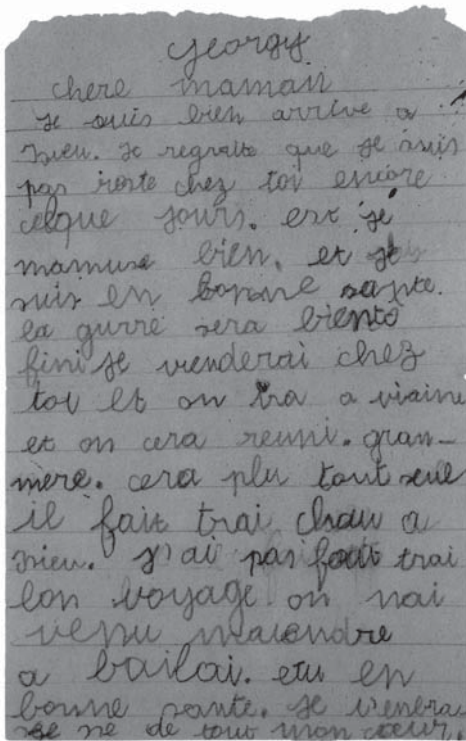 Georgy
chere maman
je suis bien arrive a
sieu. je regraite que je suis
pas resté chez toi encore
celque jours. est je
mamuse bien. et je
suis en bonne sante.
la gurre sera biento
fini je vienderai chez
toi et on ira a viaine
et on cera reuni. gran-
mère. cera plu tout seul
il fait trai chau a
sieu. j'ai pas fait trai
bon voyage on nai
venu matendre
a bailai. etu en
bonne sante. je t'enbra
se de tout mon cœur.